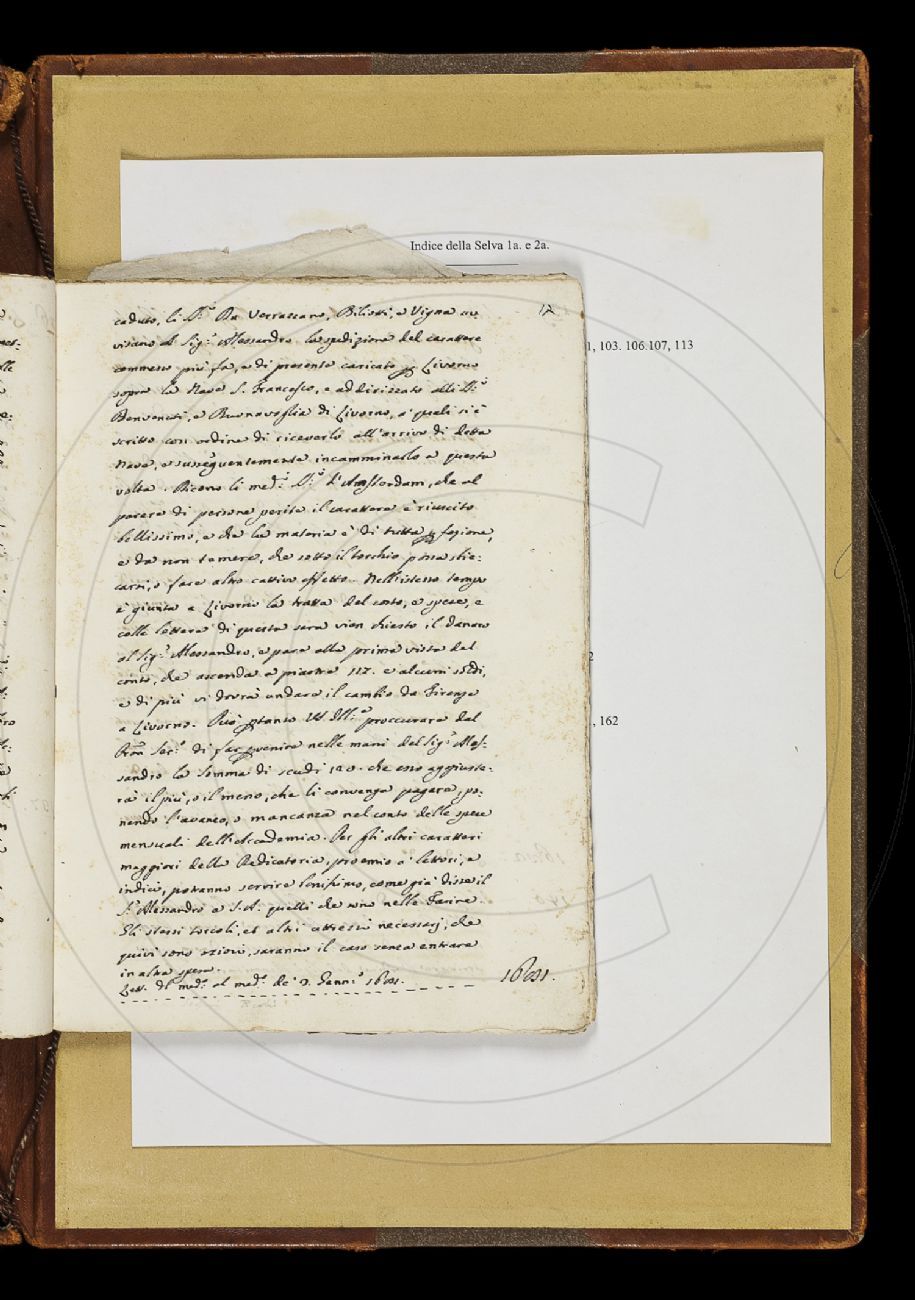 Indice della Selva 1a. e 2a.
12
caduto, li SS.ri Da Verrazzano, Biliotti, e Vigna av
visano al Sig.r Alessandro la spedizione del carattere
commesso più fa, e di presente caricato per Livorno
sopra la Nave S. Francesco, e addirizzato alli SS.ri
Benvenuti, e Buonavoglia di Livorno, a' quali si è
scritto con ordine di riceverlo all'arrivo di detta
Nave, e susseguentemente incamminarlo a questa
volta. Dicono li med.i SS.ri d'Amsterdam, che al
parere di persone perite il carattere è riuscito
bellissimo, e che la materia è di tutta perfezione,
e da non temere, che sotto il torchio possa stiac:
carsi, o fare altro cattivo effetto. Nell'istesso tempo
è giunta a Livorno la tratta del costo, e spese, e
colle lettere di questa sera vien chiesto il danaro
al Sig.r Alessandro, e pare alla prima vista del
conto, che ascenda a piastre 117. e alcuni soldi,
e di più vi dovrà andare il cambio da Firenze
a Livorno. Può pertanto VS Ill.ma proccurare dal
Pron Ser.mo di far pervenire nelle mani del Sig.r Ales:
sandro la somma di scudi 120. che esso aggiuste:
rà il più, o il meno, che li convenga pagare, po:
nendo l'avanzo, o mancanza nel conto delle spese
mensuali dell'Accademia. Per gli altri caratteri
maggiori della Dedicatoria, proemio a' lettori, e
indici, potranno servire benissimo, come già disse il
S.r Alessandro a S.A. quelli che sono nelle Farine.
Gli stessi torcoli, et altri attrezzi necessarj, che
quivi sono oziosi, saranno il caso senza entrare
in altra spesa.
Lett. del med.o al med.o de' 2. Genn.o 1691.
1691.
1, 103. 106.107, 113
2
, 162